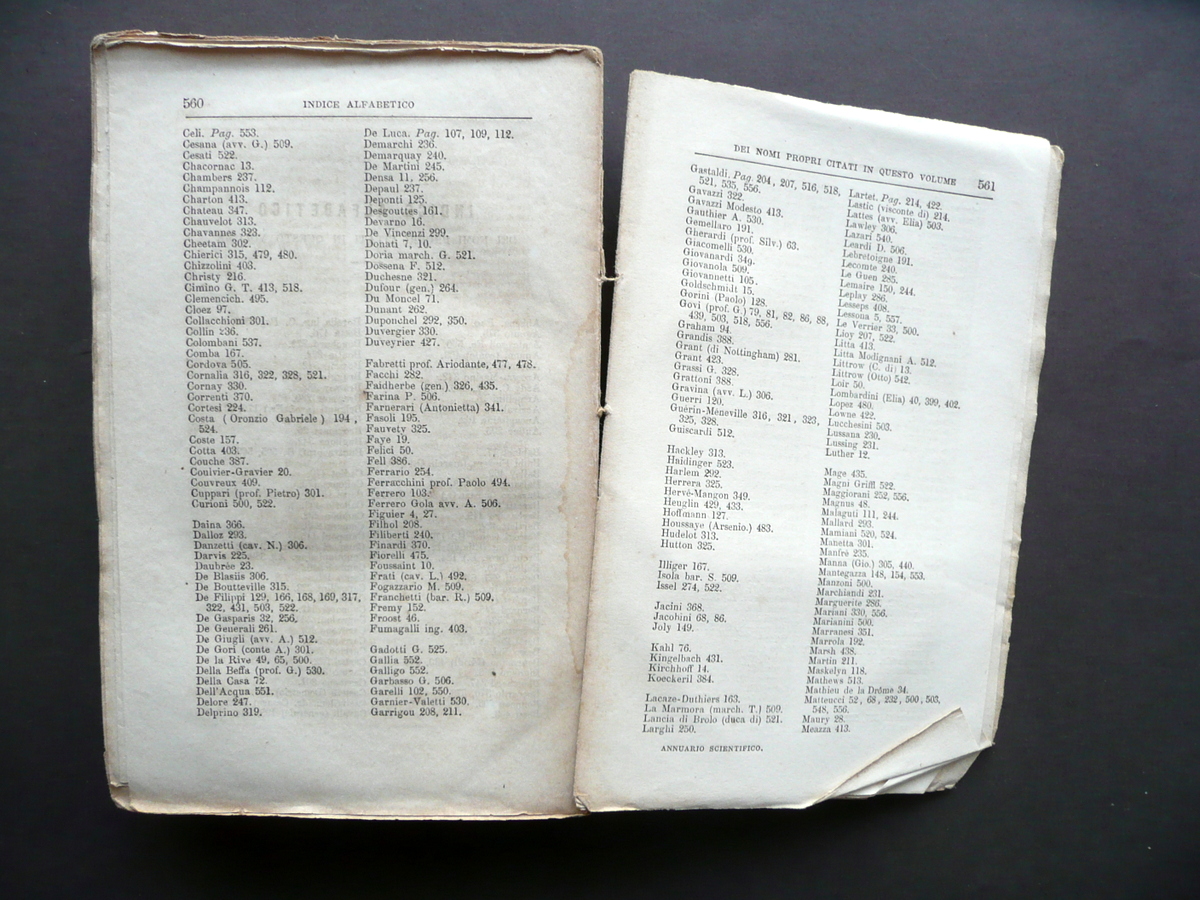 560
INDICE ALFABETICO
Celi. Pag. 553.
Cesana (avv. G.) 509.
Cesati 522.
Chacornac 13.
Chambers 237.
Champannois 112.
Charton 413.
Chateau 347.
Chauvelot 313.
Chavannes 323.
Cheetam 302.
Chierici 315, 479, 480.
Chizzolini 403.
Christy 216.
Cimino G. T. 413, 518.
Clemencich. 495.
Cloez 97.
Collacchioni 301.
Collin 236.
Colombani 537.
Comba 167.
Cordova 505.
Cornalia 316, 322, 328, 521.
Cornay 330.
Correnti 370.
Cortesi 224.
Costa (Oronzio Gabriele) 194,
524.
Coste 157.
Cotta 403.
Couche 387.
Couivier-Gravier 20.
Couvreux 409.
Cuppari (prof. Pietro) 301.
Curioni 500, 522.
Daina 366.
Dalloz 293.
Danzetti (cav. N.) 306.
Darvis 225.
Daubrée 23.
De Blasiis 306.
De Boutteville 315.
De Filippi 129, 166, 168, 169, 317,
322, 431, 503, 522.
De Gasparis 32, 256.
De Generali 261.
De Giugli (avv. A.) 512.
De Gori (conte A.) 301.
De la Rive 49, 65, 500.
Della Beffa (prof. G.) 530.
Della Casa 72.
Dell'Acqua 551.
Delore 247.
Delprino 319.
De Luca. Pag. 107, 109, 112.
Demarchi 236.
Demarquay 240.
De Martini 245.
Densa 11, 256.
Depaul 237.
Deponti 125.
Desgouttes 161.
Devarno 16.
De Vincenzi 299.
Donati 7, 10.
Doria march. G. 521.
Dossena F. 512.
Duchesne 321.
Dufour (gen.) 264.
Du Moncel 71.
Dunant 262.
Duponchel 292, 350.
Duvergier 330.
Duveyrier 427.
Fabretti prof. Ariodante, 477, 478.
Facchi 282.
Faidherbe (gen.) 326, 435.
Farina P. 506.
Farnerari (Antonietta) 341.
Fasoli 195.
Fauvety 325.
Faye 19.
Felici 50.
Fell 386.
Ferrario 254.
Ferracchini prof. Paolo 494.
Ferrero 103.
Ferrero Gola avv. A. 506.
Figuier 4, 27.
Filhol 208.
Filiberti 240.
Finardi 370.
Fiorelli 475.
Foussaint 10.
Frati (cav. L.) 492.
Fogazzario M. 509.
Franchetti (bar. R.) 509.
Fremy 152.
Froost 46.
Fumagalli ing. 403.
Gadotti G. 525.
Gallia 552.
Galligo 552.
Garbasso G. 506.
Garelli 102, 550.
Garnier-Valetti 530.
Garrigou 208, 211.
DEI NOMI PROPRI CITATI IN QUESTO VOLUME
561
Gastaldi. Pag. 204, 207, 516, 518,
521, 535, 556.
Gavazzi 322.
Gavazzi Modesto 413.
Gauthier A. 530.
Gemellaro 191.
Gherardi (prof. Silv.) 63.
Giacomelli 530.
Giovanardi 349.
Giovanola 509.
Giovannetti 105.
Goldschmidt 15.
Gorini (Paolo) 128.
Govi (prof. G.) 79, 81, 82, 86, 88,
439, 503, 518, 556.
Graham 94.
Grandis 388.
Grant (di Nottingham) 281.
Grant 423.
Grassi G. 328.
Grattoni 388.
Gravina (avv. L.) 306.
Guerri 120.
Guérin-Méneville 316, 321, 323,
325, 328.
Guiscardi 512.
Hackley 313.
Haidinger 523.
Harlem 292.
Herrera 325.
Hervé-Mangon 349.
Heuglin 429, 433.
Hoffmann 127.
Houssaye (Arsenio.) 483.
Hudelot 313.
Hutton 325.
Illiger 167.
Isola bar. S. 509.
Issel 274, 522.
Jacini 368.
Jacobini 68, 86.
Joly 149.
Kahl 76.
Kingelbach 431.
Kirchhoff 14.
Koeckeril 384.
Lacaze-Duthiers 163.
La Marmora (march. T.) 509.
Lancia di Brolo (duca di) 521.
Larghi 250.
Lartet. Pag. 214, 422.
Lastic (visconte di) 214.
Lattes (avv. Elia) 503.
Lawley 306.
Lazari 540.
Leardi D. 506.
Lebretoigne 191.
Lecomte 240.
Le Guen 285.
Lemaire 150, 244.
Leplay 286.
Lesseps 408.
Lessona 5, 557.
Le Verrier 33, 500.
Lioy 207, 522.
Litta 413.
Litta Modignani A. 512.
Littrow (C. di) 13.
Littrow (Otto) 542.
Loir 50.
Lombardini (Elia) 40, 399, 402.
Lopez 480.
Lowne 422.
Lucchesini 503.
Lussana 230.
Lussing 231.
Luther 12.
Mage 435.
Magni Griffi 522.
Maggiorani 252, 556.
Magnus 48.
Malaguti 111, 244.
Mallard 293.
Mamiani 520, 524.
Manetta 301.
Manfrè 235.
Manna (Gio.) 305, 440.
Mantegazza 148, 154, 553.
Manzoni 500.
Marchiandi 231.
Marguerite 286.
Mariani 330, 556.
Marianini 500.
Marranesi 351.
Marrola 192.
Marsh 438.
Martin 211.
Maskelyn 118.
Mathews 513.
Mathieu de la Drôme 34.
Matteucci 52, 68, 232, 500, 503,
548, 556.
Maury 28.
Meazza 413.
ANNUARIO SCIENTIFICO.